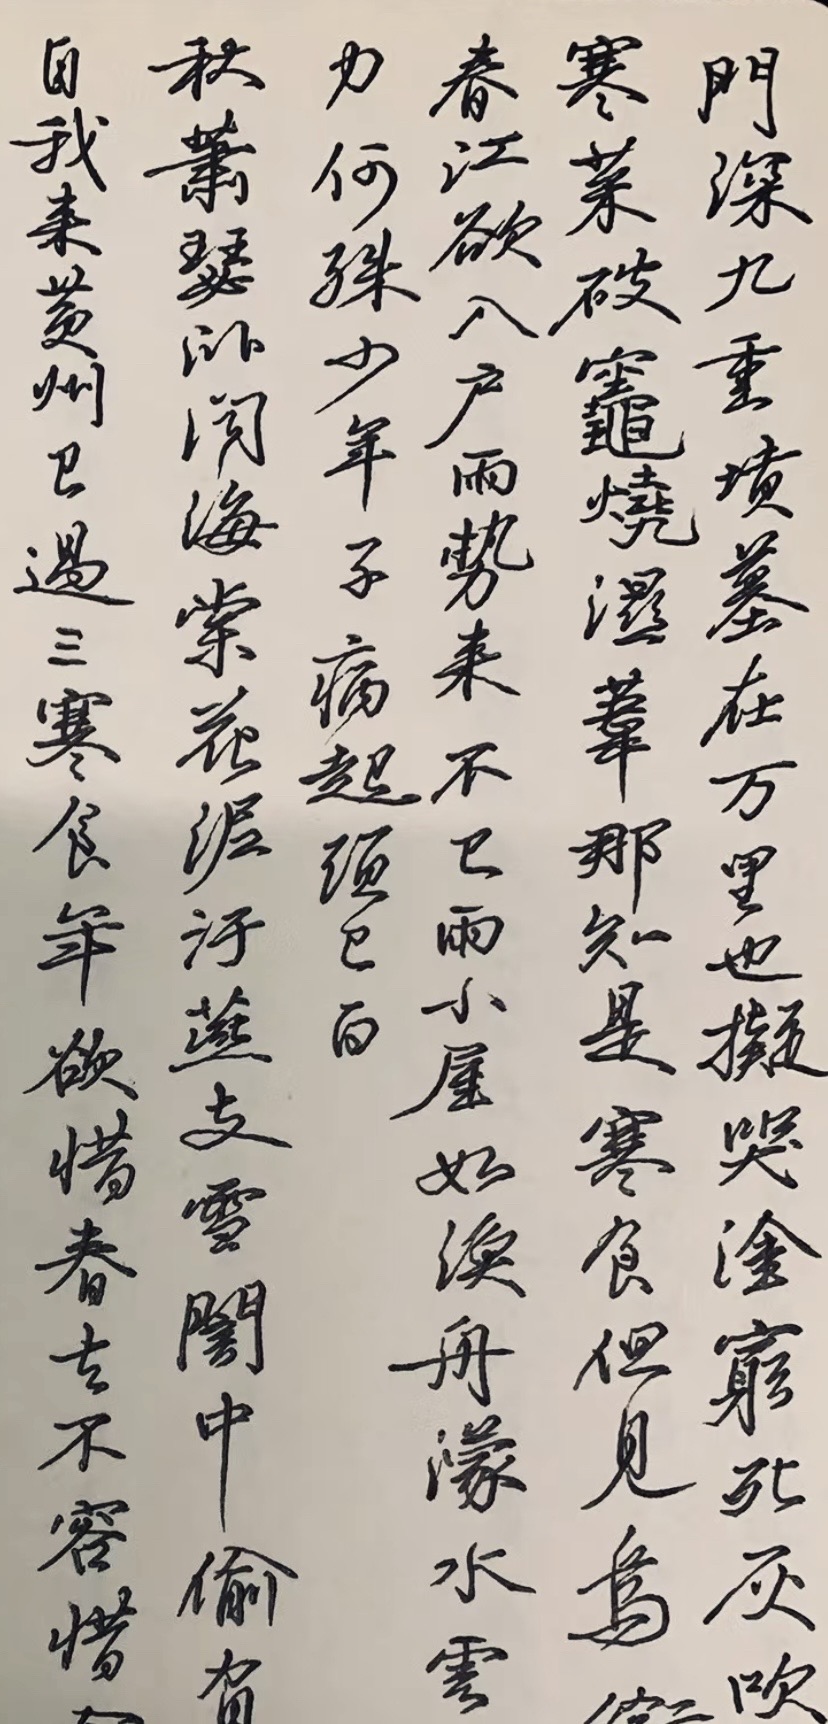 自我来黄州已過三寒食年欲惜春去不容惜
秋蕭瑟卧聞海棠花泥汙燕支雪闇中偷負
力何殊少年子病起頭已白
春江欲入户雨勢来不已雨小屋如漁舟濛水雲
寒菜破竈燒濕葦那知是寒食但見烏銜
門深九重墳墓在万里也擬哭塗窮死灰吹